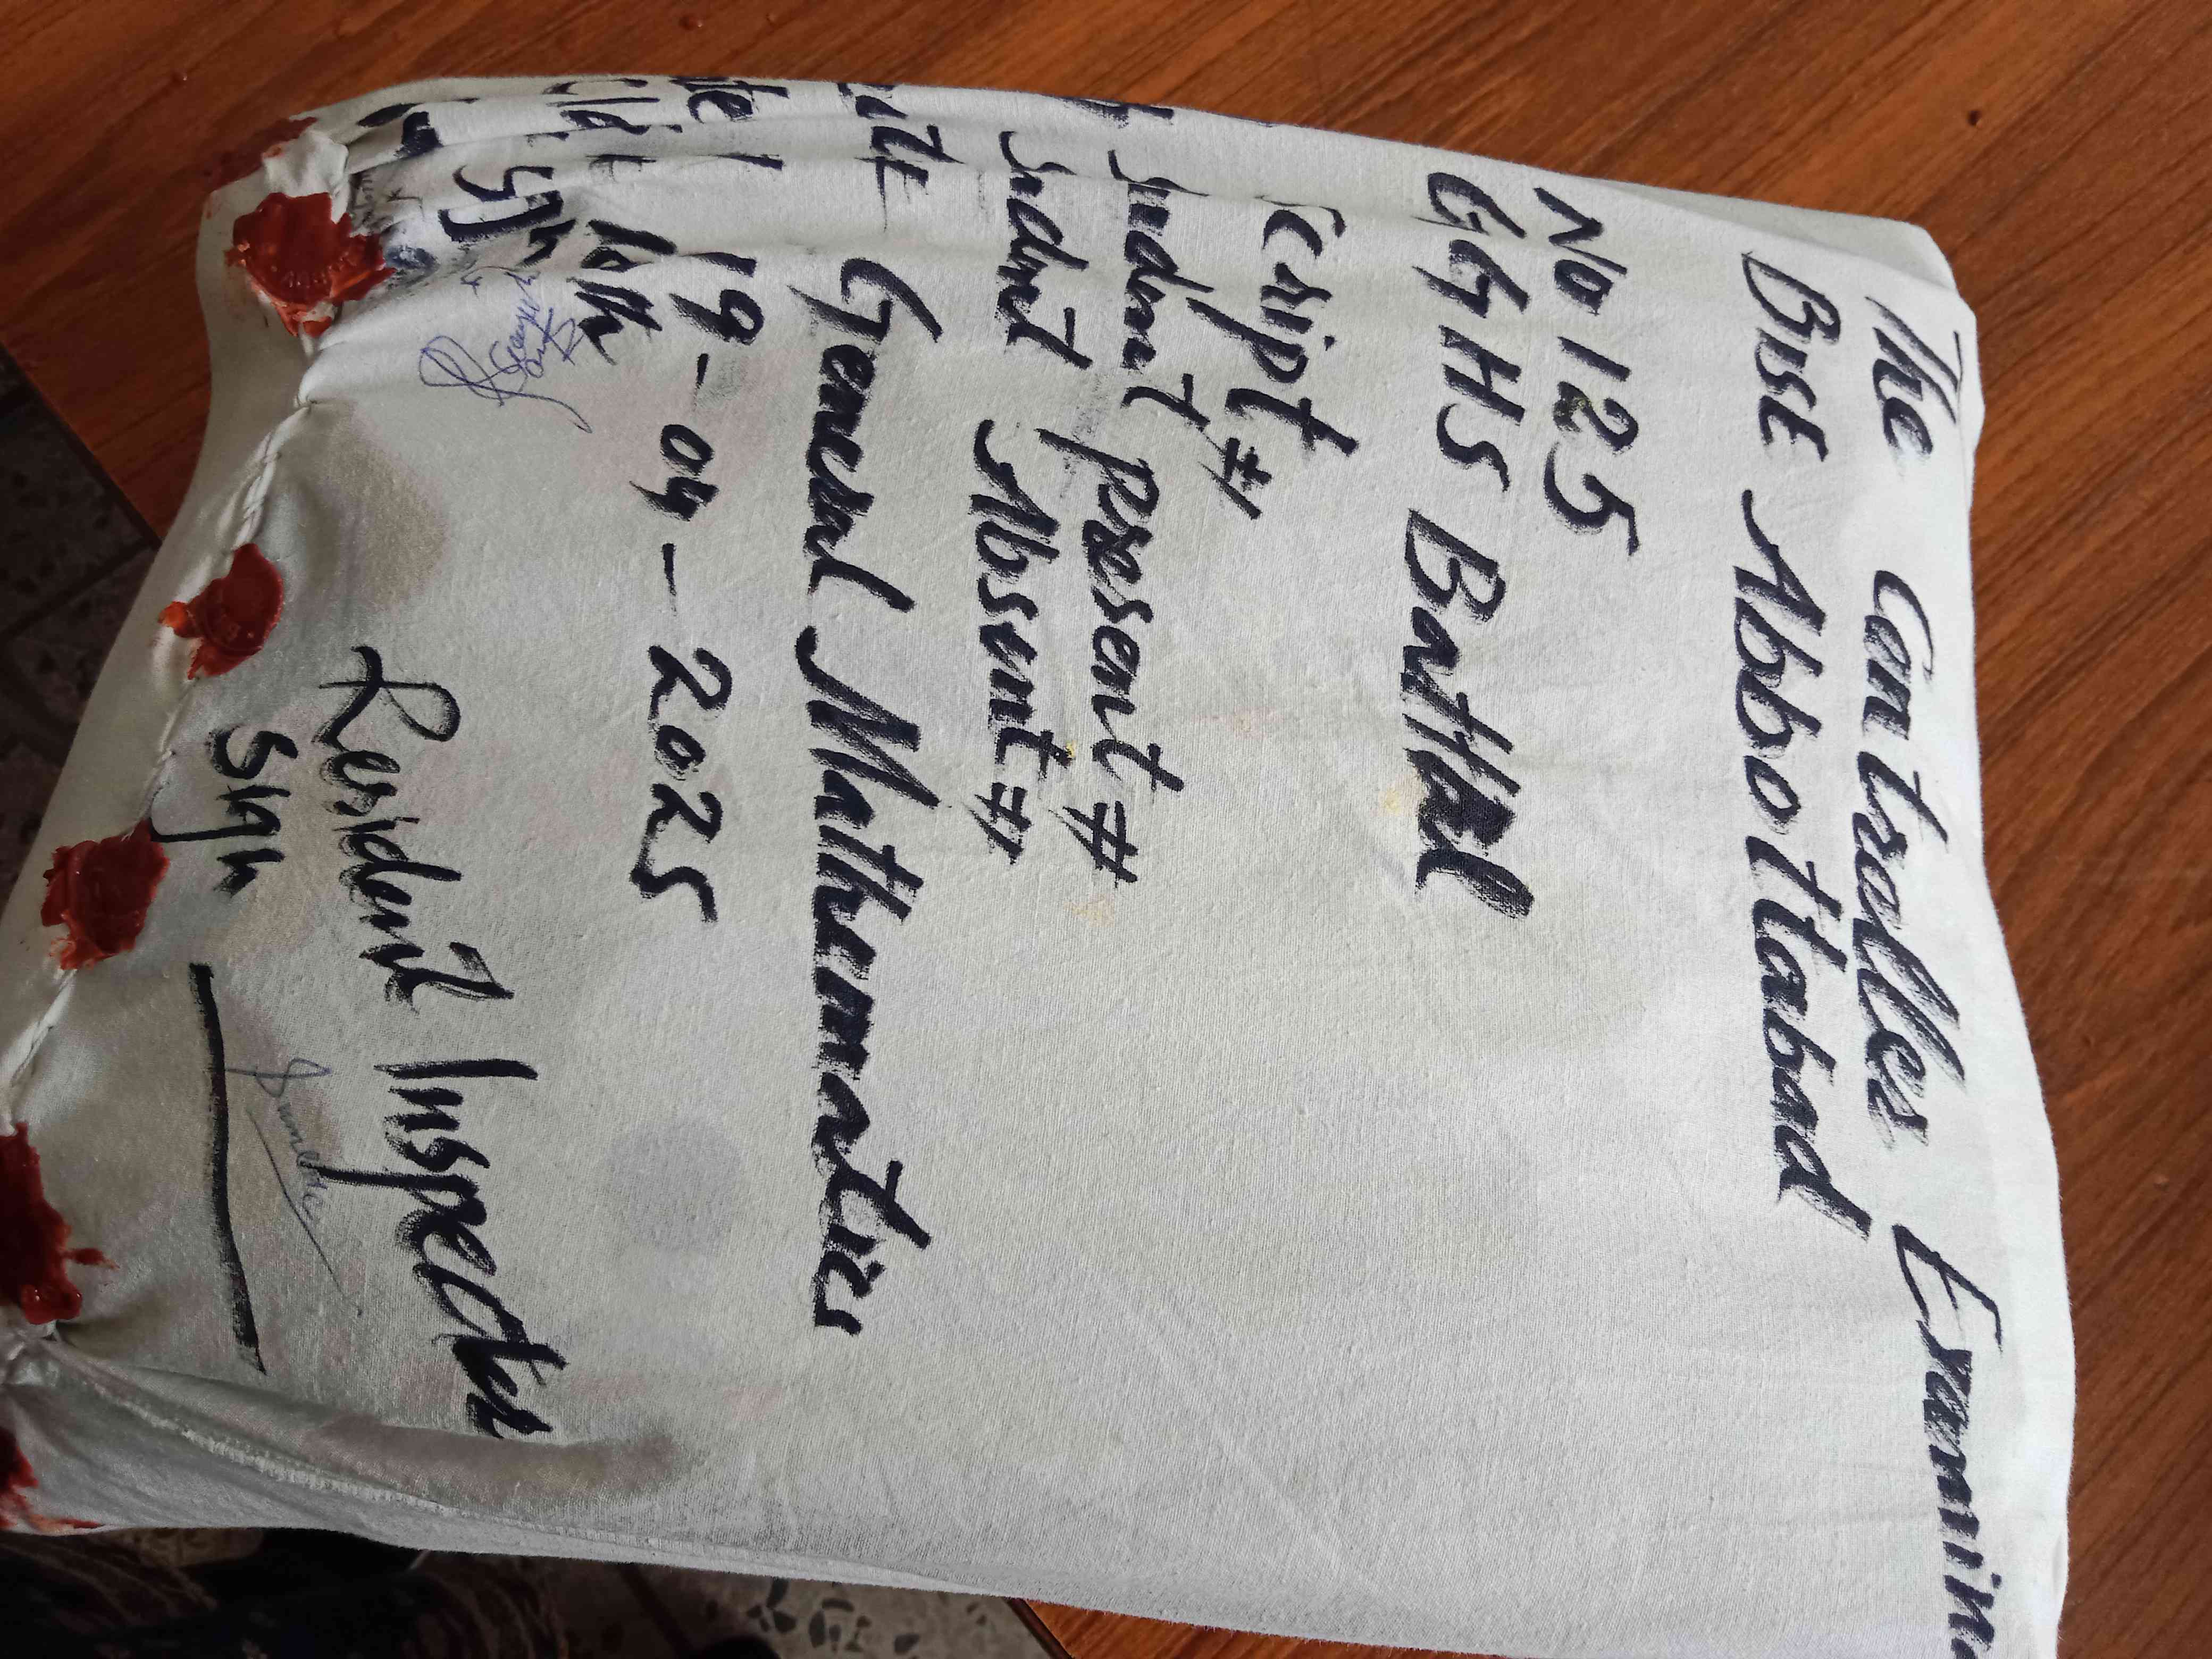 The Controller Examin
BISE Abbottabad
No 125
GGHS Batthal
Script #
Student Present #
Student Absent #
General Mathematics
19-04-2025
10th
Sign
Resident Inspector
Sign